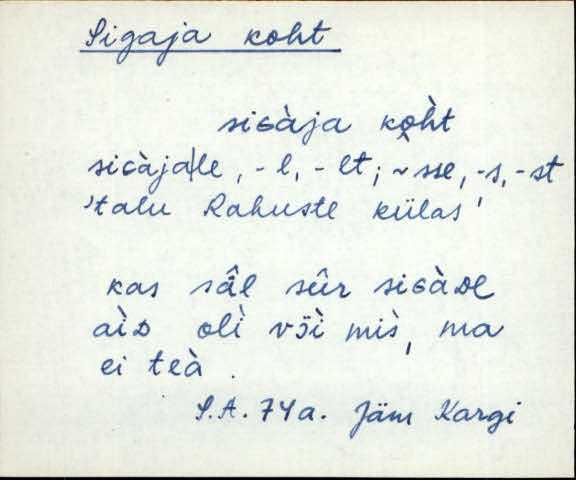 Sigaja koht
siɢàja ko̭h̀t
siɢàja|le, -l, -lt; ~sse, -s, -st
'talu Rahuste külas'
kas sâl sûr siɢàᴅel
aìᴅ olì vɔ̈ì mis̀, ma
ei teà.
S.A. 74a. Jäm Kargi